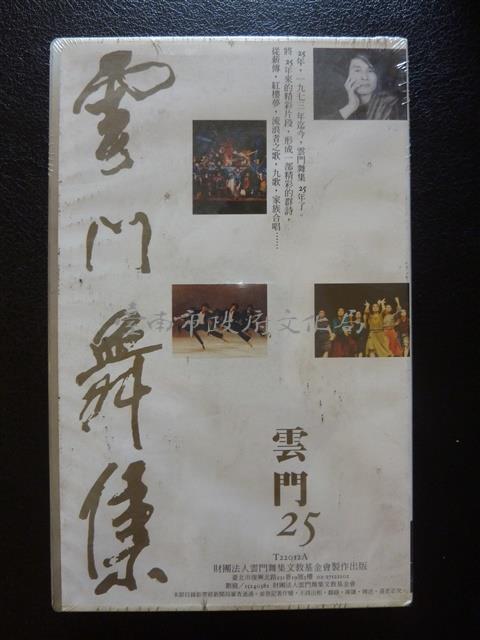 雲門舞集
25年，一九七三年迄今，雲門舞集25年了。
將25年來的精彩片段，形成一部精彩的群詩，
從薪傳，紅樓夢，流浪者之歌，九歌，家族合唱……
臺南市政府文化局
雲門
25
T22012A
財團法人雲門舞集文教基金會製作出版
臺北市復興北路231巷19號5樓 02-27122102
郵撥／15240382 財團法人雲門舞集文教基金會